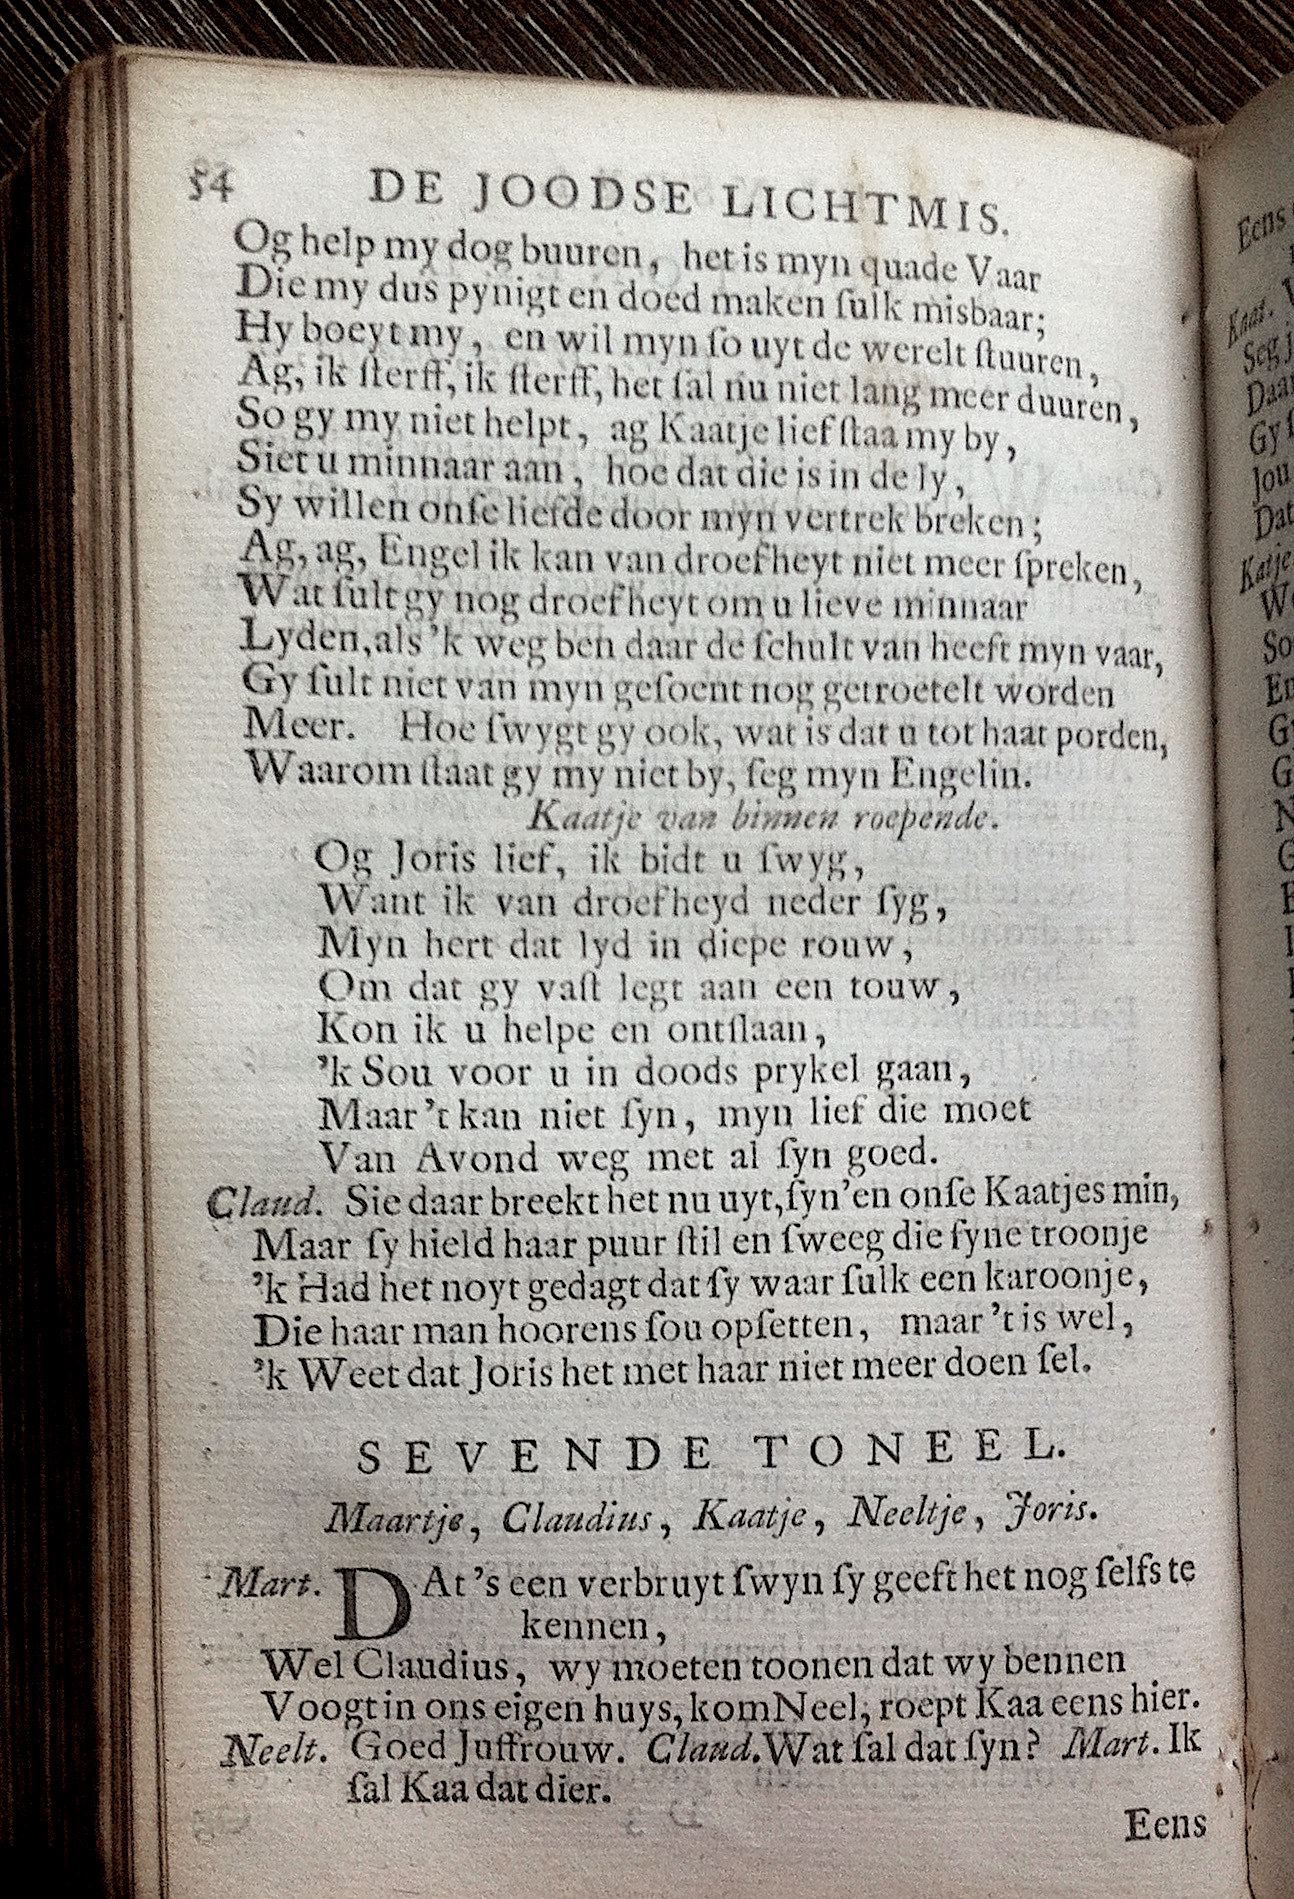 54 DE JOODSE LICHTMIS.
Og help my dog buuren, het is myn quade Vaar
Die my dus pynigt en doed maken ſulk misbaar;
Hy boeyt my, en wil myn ſo uyt de werelt ſtuuren,
Ag, ik ſterff, ik ſterff, het ſal nu niet lang meer duuren,
So gy my niet helpt, ag Kaatje lief ſtaa my by,
Siet u minnaar aan, hoe dat die is in de ly,
Sy willen onſe liefde door myn vertrek breken;
Ag, ag, Engel ik kan van droefheyt niet meer ſpreken,
Wat ſult gy nog droefheyt om u lieve minnaar
Lyden, als 'k weg ben daar de ſchult van heeft myn vaar,
Gy ſult niet van myn geſoent nog getroetelt worden
Meer. Hoe ſwygt gy ook, wat is dat u tot haat porden,
Waarom ſtaat gy my niet by, ſeg myn Engelin.
Kaatje van binnen roepende.
Og Joris lief, ik bidt u ſwyg,
Want ik van droefheyd neder ſyg,
Myn hert dat lyd in diepe rouw,
Om dat gy vaſt legt aan een touw,
Kon ik u helpe en ontſlaan,
'k Sou voor u in doods prykel gaan,
Maar 't kan niet ſyn, myn lief die moet
Van Avond weg met al ſyn goed.
Claud. Sie daar breekt het nu uyt, ſyn'en onſe Kaatjes min,
Maar ſy hield haar puur ſtil en ſweeg die fyne troonje
'k Had het noyt gedagt dat ſy waar ſulk een karoonje,
Die haar man hoorens ſou opſetten, maar 't is wel,
'k Weet dat Joris het met haar niet meer doen ſel.
SEVENDE TONEEL.
Maartje, Claudius, Kaatje, Neeltje, Joris.
Mart. DAt 's een verbruyt ſwyn ſy geeft het nog ſelfs te
kennen,
Wel Claudius, wy moeten toonen dat wy bennen
Voogt in ons eigen huys, kom Neel, roept Kaa eens hier.
Neelt. Goed Juffrouw. Claud. Wat ſal dat ſyn? Mart. Ik
ſal Kaa dat dier.
Eens
Eens
Kaat.
Seg
Daar
Gy
Jou
Dat
Katje
So